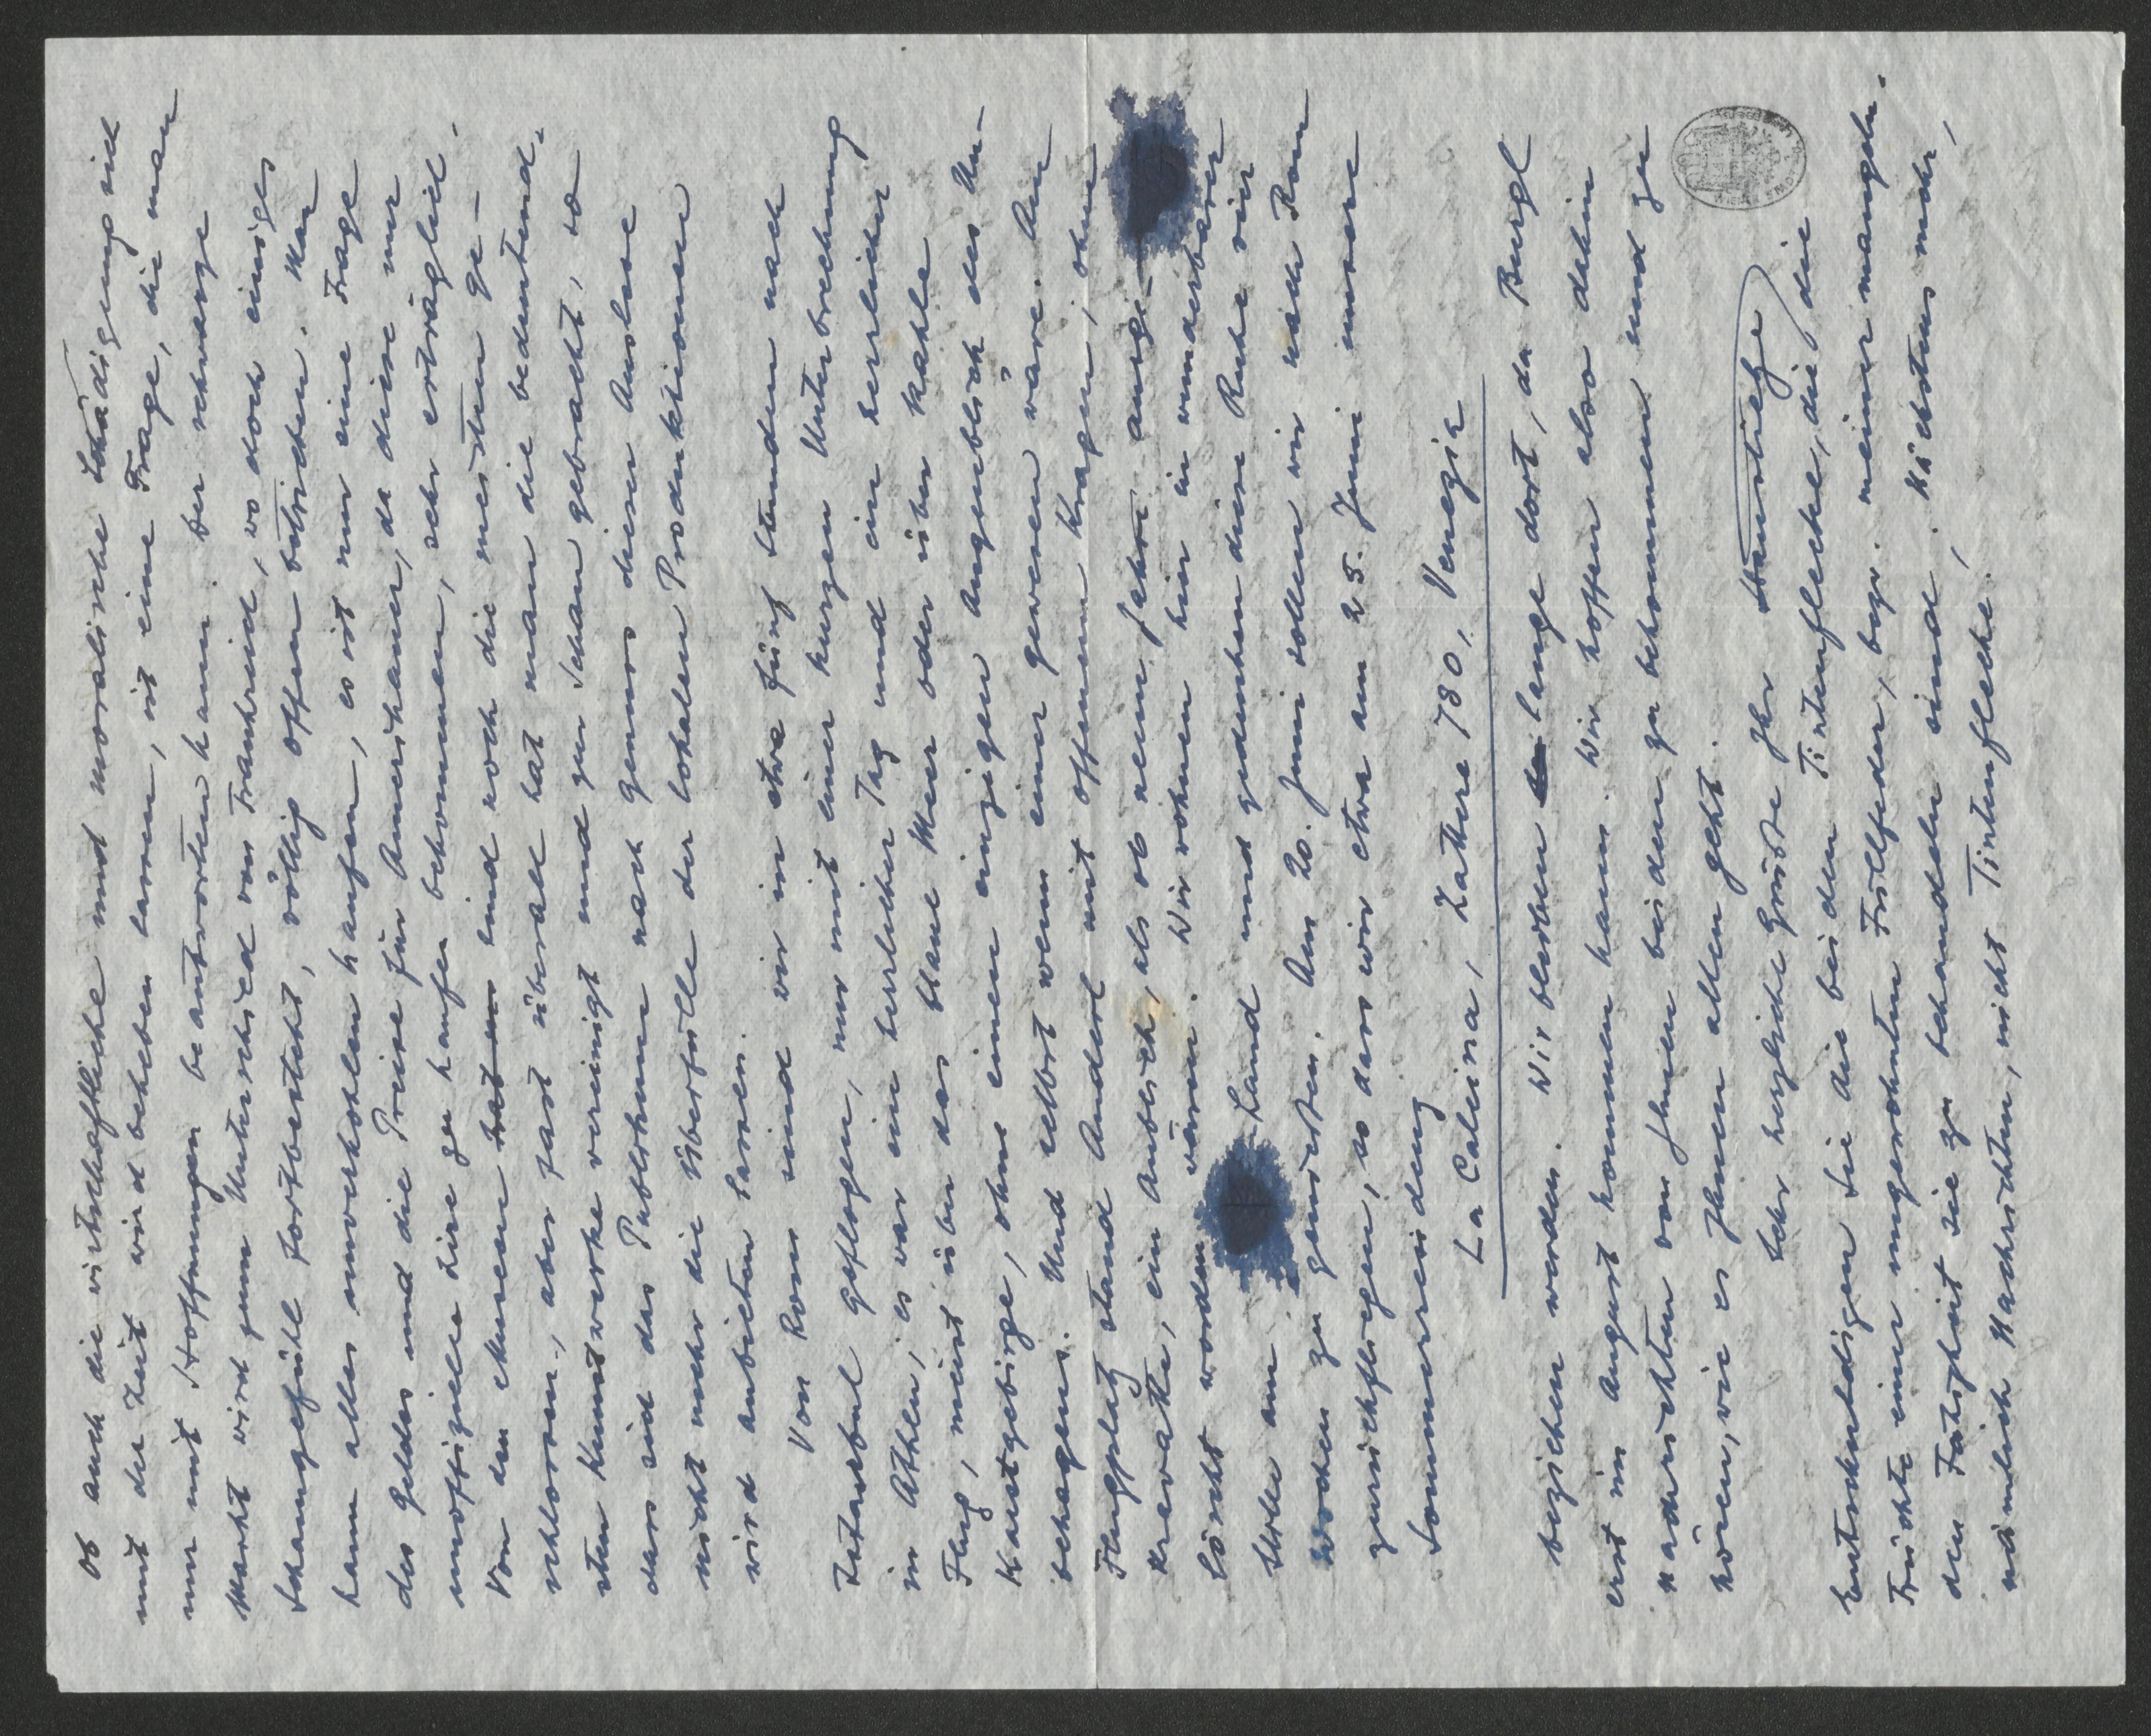 ob auch die wirtschaftliche und moralische Schädigung sich
mit der Zeit wird beheben lassen, ist eine Frage, die man
nur mit Hoffnungen beantworten kann. Der schwarze
Markt wird zum Unterschied von Frankreich, wo doch einiges
Schamgefühl fortbesteht, völlig offen betrieben. Man
kann alles unverhohlen kaufen, es ist nur eine Frage
des Geldes und die Preise für Amerikaner, da diese nur
inoffizielle Lire zu kaufen bekommen, sehr erträglich.
Von den Museen sind noch die meisten ge-
schlossen, aber fast überall hat man die bedeutend-
sten Kunstwerke vereinigt und zur Schau gebracht, so
dass sich das Publikum nach Genuss dieser Auslese
nicht mehr die Überfülle der lokalen Produktionen
wird anbieten lassen.
Von Rom sind wir in etwa fünf Stunden nach
Istanbul geflogen, nur mit einer kurzen Unterbrechung
in Athen; es war ein herrlicher Tag und ein herrlicher
Flug, meist über das blaue Meer oder über kahle
Karstgebirge, ohne einen einzigen Augenblick des Un-
behagens. Und selbst wenn einer gewesen wäre. Am
Flugplatz stand Anderl mit offenem Kragen, ohne
Krawatte, ein Anblick, als ob neun Jahre ausge-
löscht worden wären. Wir wohnen hier in wunderbarer
Stille am Land und gedenken diese Ruhe vier
Wochen zu geniessen. Am 20. Juni sollen wir nach Rom
zurückfliegen, so dass wir etwa am 25. Juni unsere
Sommerresidenz
La Calcina, Zattere 780, Venezia
beziehen werden. Wir bleiben lange dort, da Burgl
erst im August kommen kann. Wir hoffen also dahin
Nachrichten von Ihnen beiden zu bekommen und zu
hören, wie es Ihnen allen geht.
Sehr herzliche Grüsse Ihr
Entschuldigen Sie die beiden Tintenflecke, die die
Früchte einer ungewohnten Füllfeder, bzw. meiner mangeln-
den Fähigkeit sie zu behandeln sind. Nächstens mehr,
nämlich Nachrichten, nicht Tintenflecke.